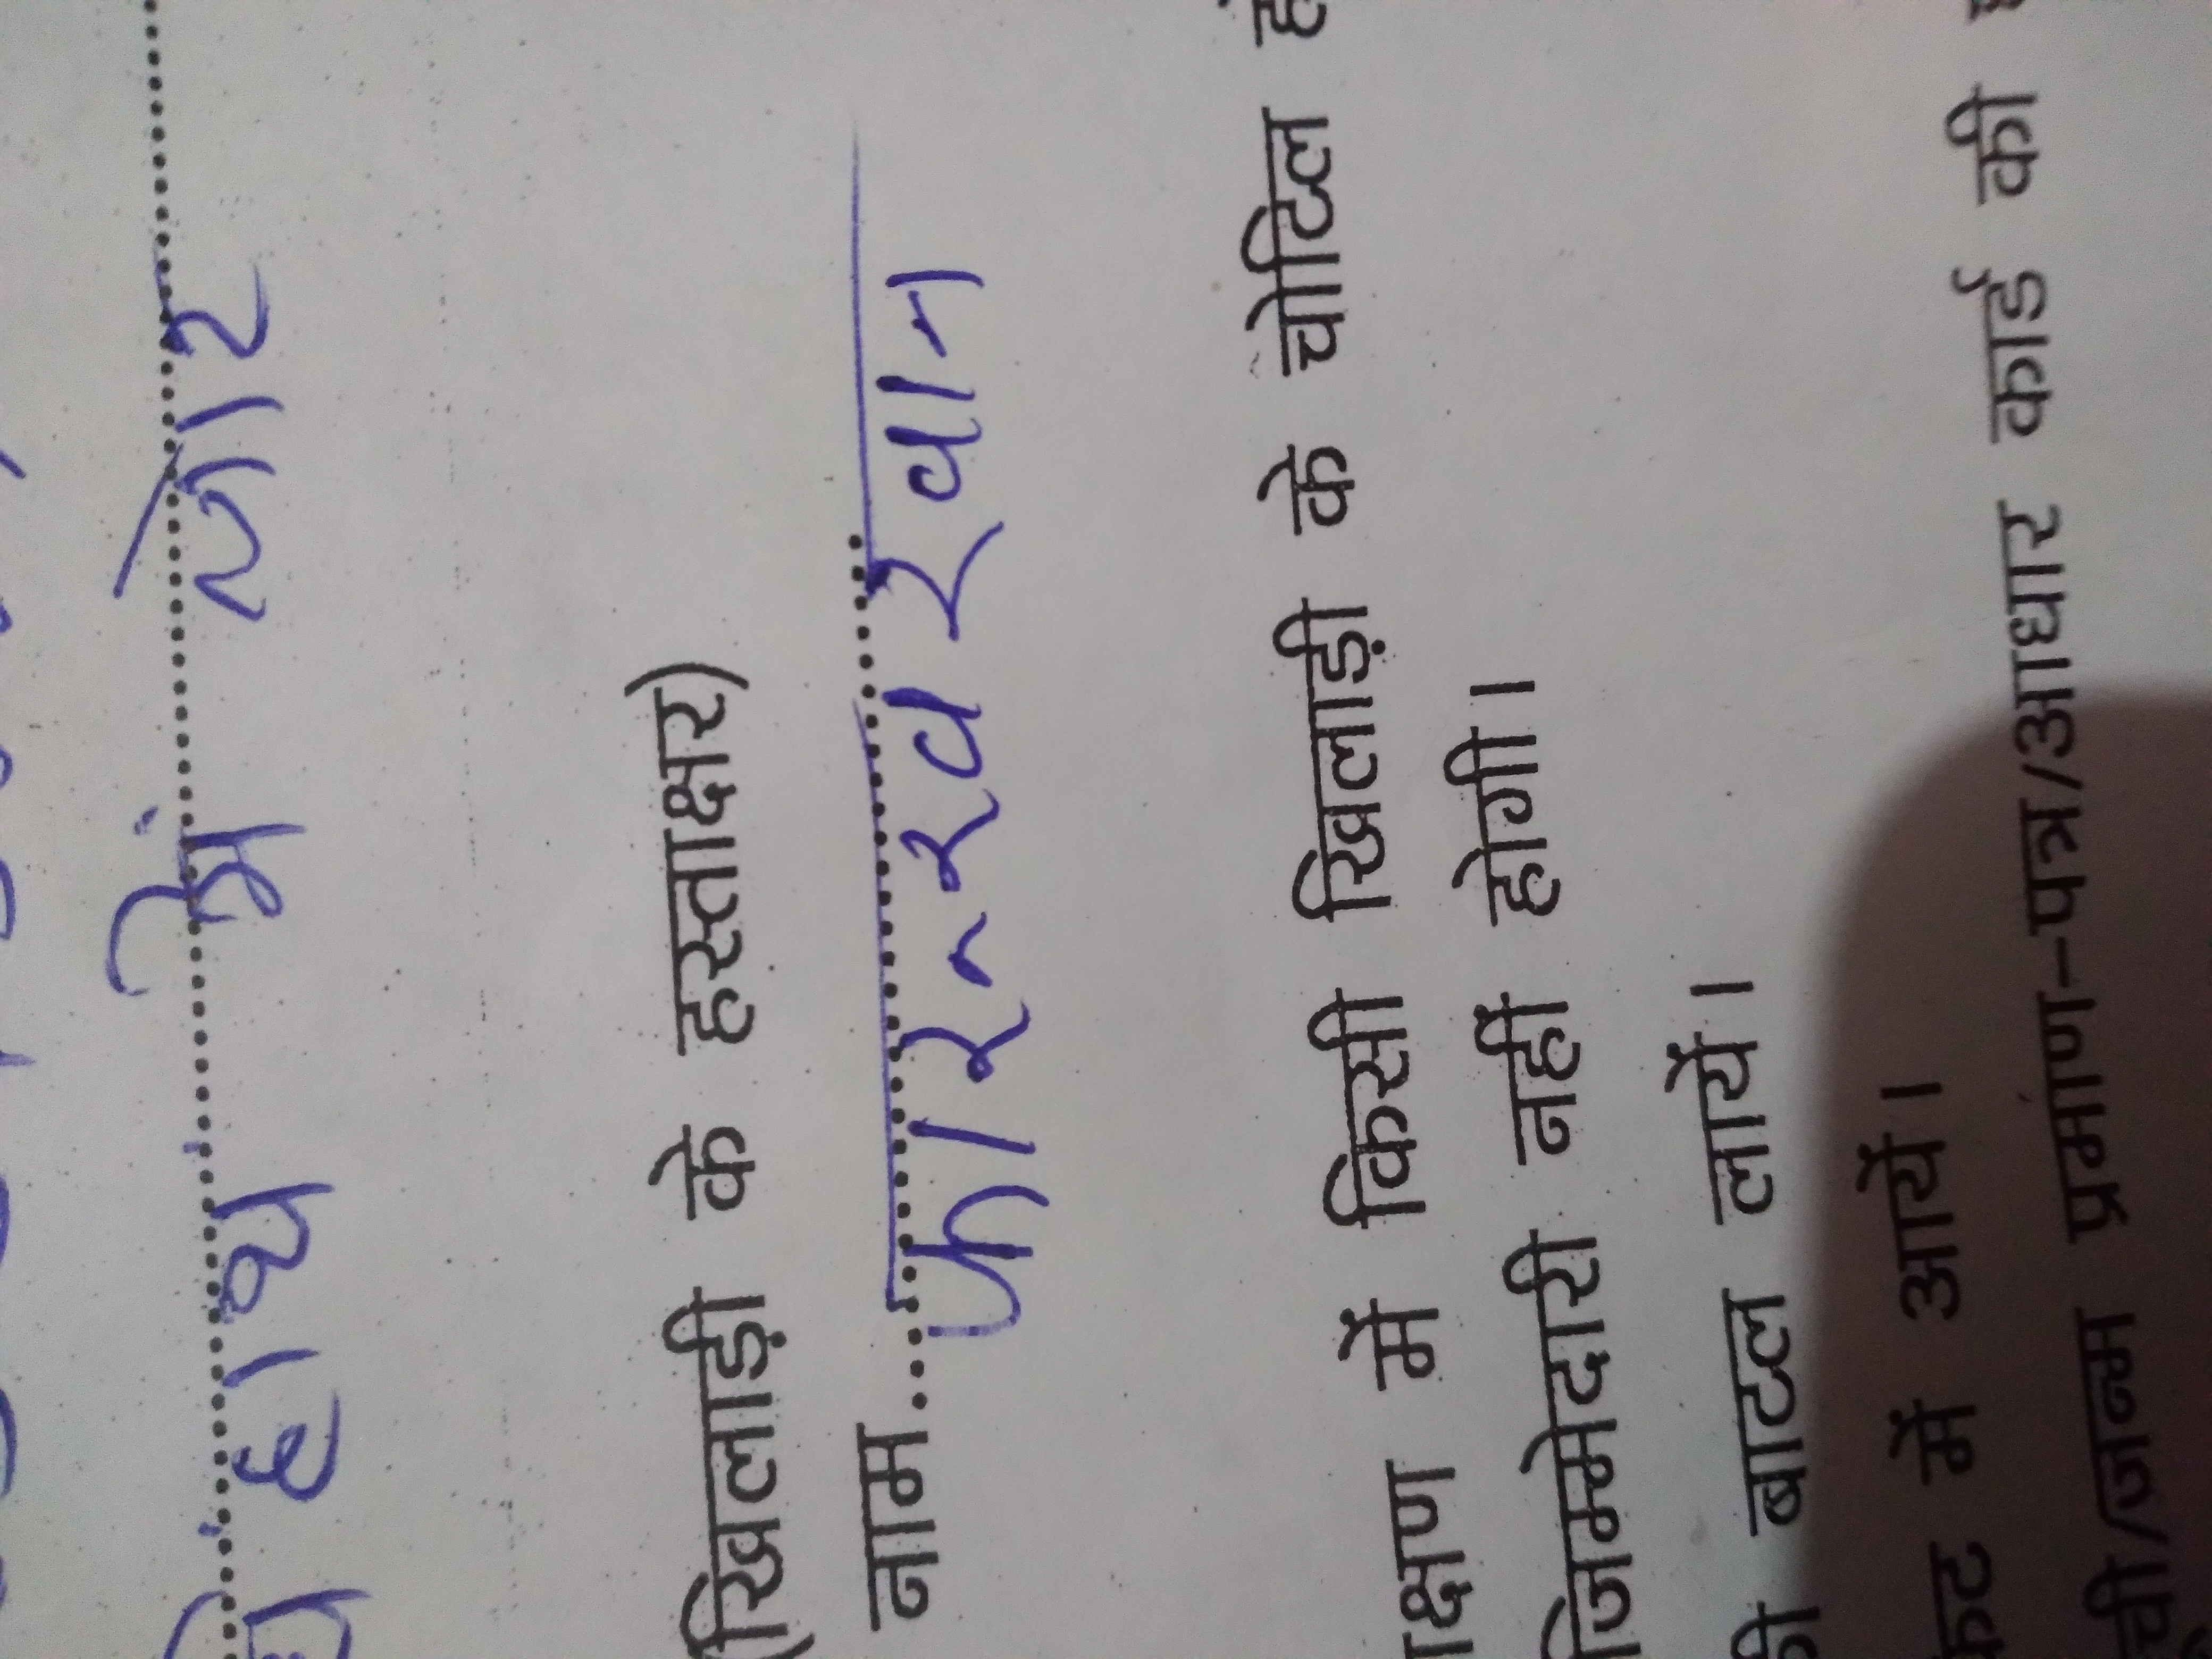 हाथ में चोट
(खिलाड़ी के हस्ताक्षर)
नाम.. फारुख खान
क्षण में किसी खिलाड़ी के चोटिल
जिम्मेदारी नहीं होगी।
बाटल लायें।
में आयें।
/जन्म प्रमाण-पत्र/आधार कार्ड की